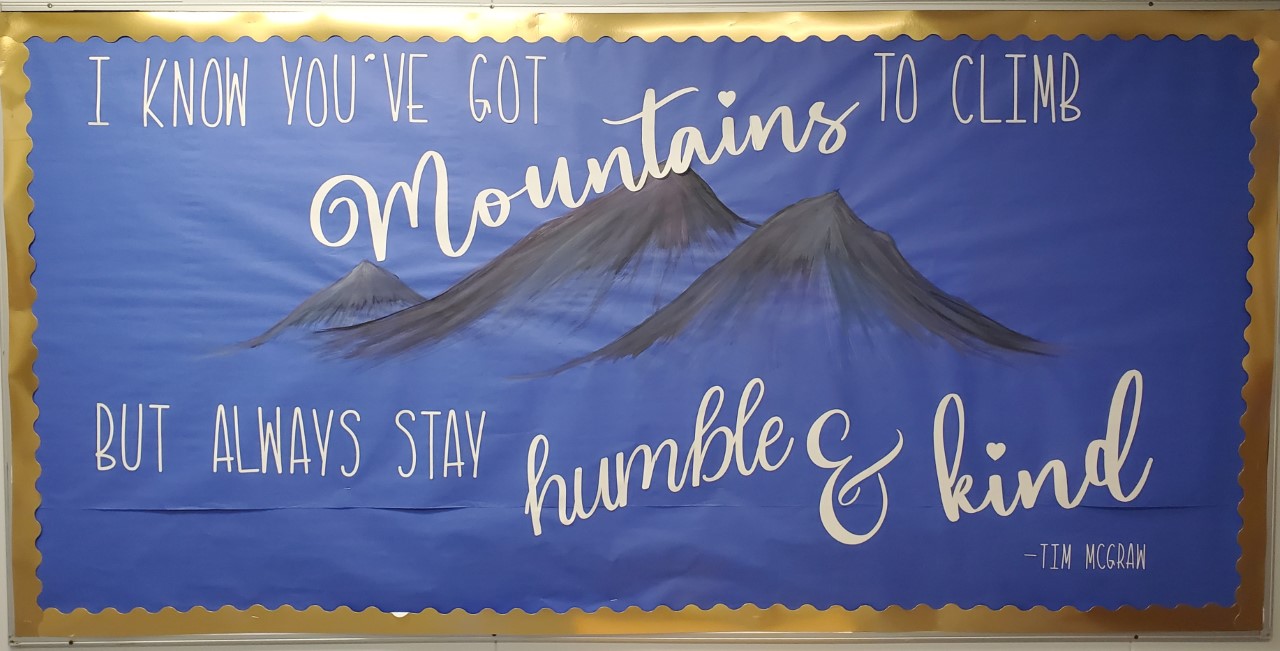 I KNOW YOU'VE GOT Mountains TO CLIMB
BUT ALWAYS STAY humble & kind
-TIM MCGRAW